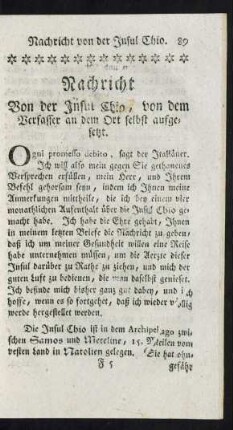 Nachricht von der Insul Chio. 89
Nachricht
Von der Insul Chio, von dem
Verfasser an dem Ort selbst aufge-
setzt.
Ogni promesso debito, sagt der Italiäner.
Ich will also mein gegen Sie gethoneues
Versprechen erfüllen, mein Herr, und Ihrem
Befehl gehorsam seyn, indem ich Ihnen meine
Anmerkungen mittheile, die ich bey einem vier
monathlichen Aufenthalt über die Insul Chio ge-
macht habe. Ich habe die Ehre gehabt, Ihnen
in meinem letzten Briefe die Nachricht zu geben,
daß ich um meiner Gesundheit willen eine Reise
habe unternehmen müssen, um die Aerzte dieser
Insul darüber zu Rathe zu ziehen, und mich der
guten Luft zu bedienen, die man daselbst genießt.
Ich befinde mich bisher ganz gut dabey, und ich
hoffe, wenn es so fortgehet, daß ich wieder völlig
werde hergestellet werden.
Die Insul Chio ist in dem Archipelago zwi-
schen Samos und Meteline, 15. Meilen vom
vesten Land in Natolien gelegen. Sie hat ohn-
F 5 gefähr